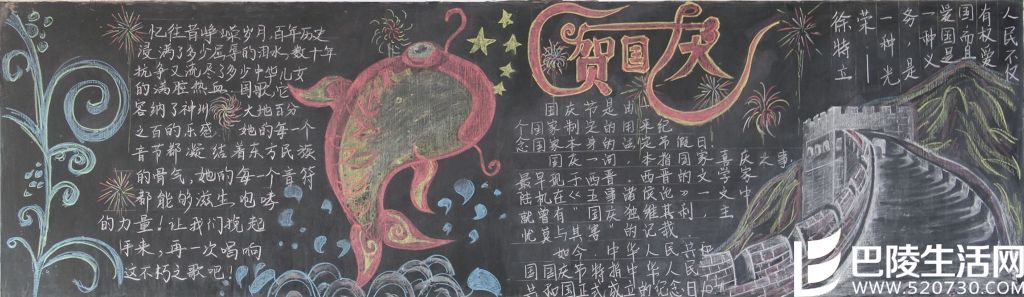 忆往昔峥嵘岁月,百年历史
浸满了多少屈辱的泪水,数十年
抗争又流尽了多少中华儿女
的满腔热血.国歌,它
容纳了神州大地百分
之百的乐感.她的每一个
音节都凝结着东方民族
的骨气,她的每一个音符
都能够滋生
的力量!让我们挽起
手来,再一次唱响
这不朽之歌吧!
贺国庆
国庆节是由
个国家制定的用来纪
念国家本身的法定假日.
国庆一词,本指国家喜庆之事
最早见于西晋.
陆机在《
就曾有"国
忧莫与其害"的记
如今中华人民共和
国国庆节特指中华人民
共和国正式成立的纪念日10
人民不仅
有权爱
国而且
爱国是
一种义
务,是
一种光
荣.——
徐特立
巴陵生活网
WWW.520730.COM